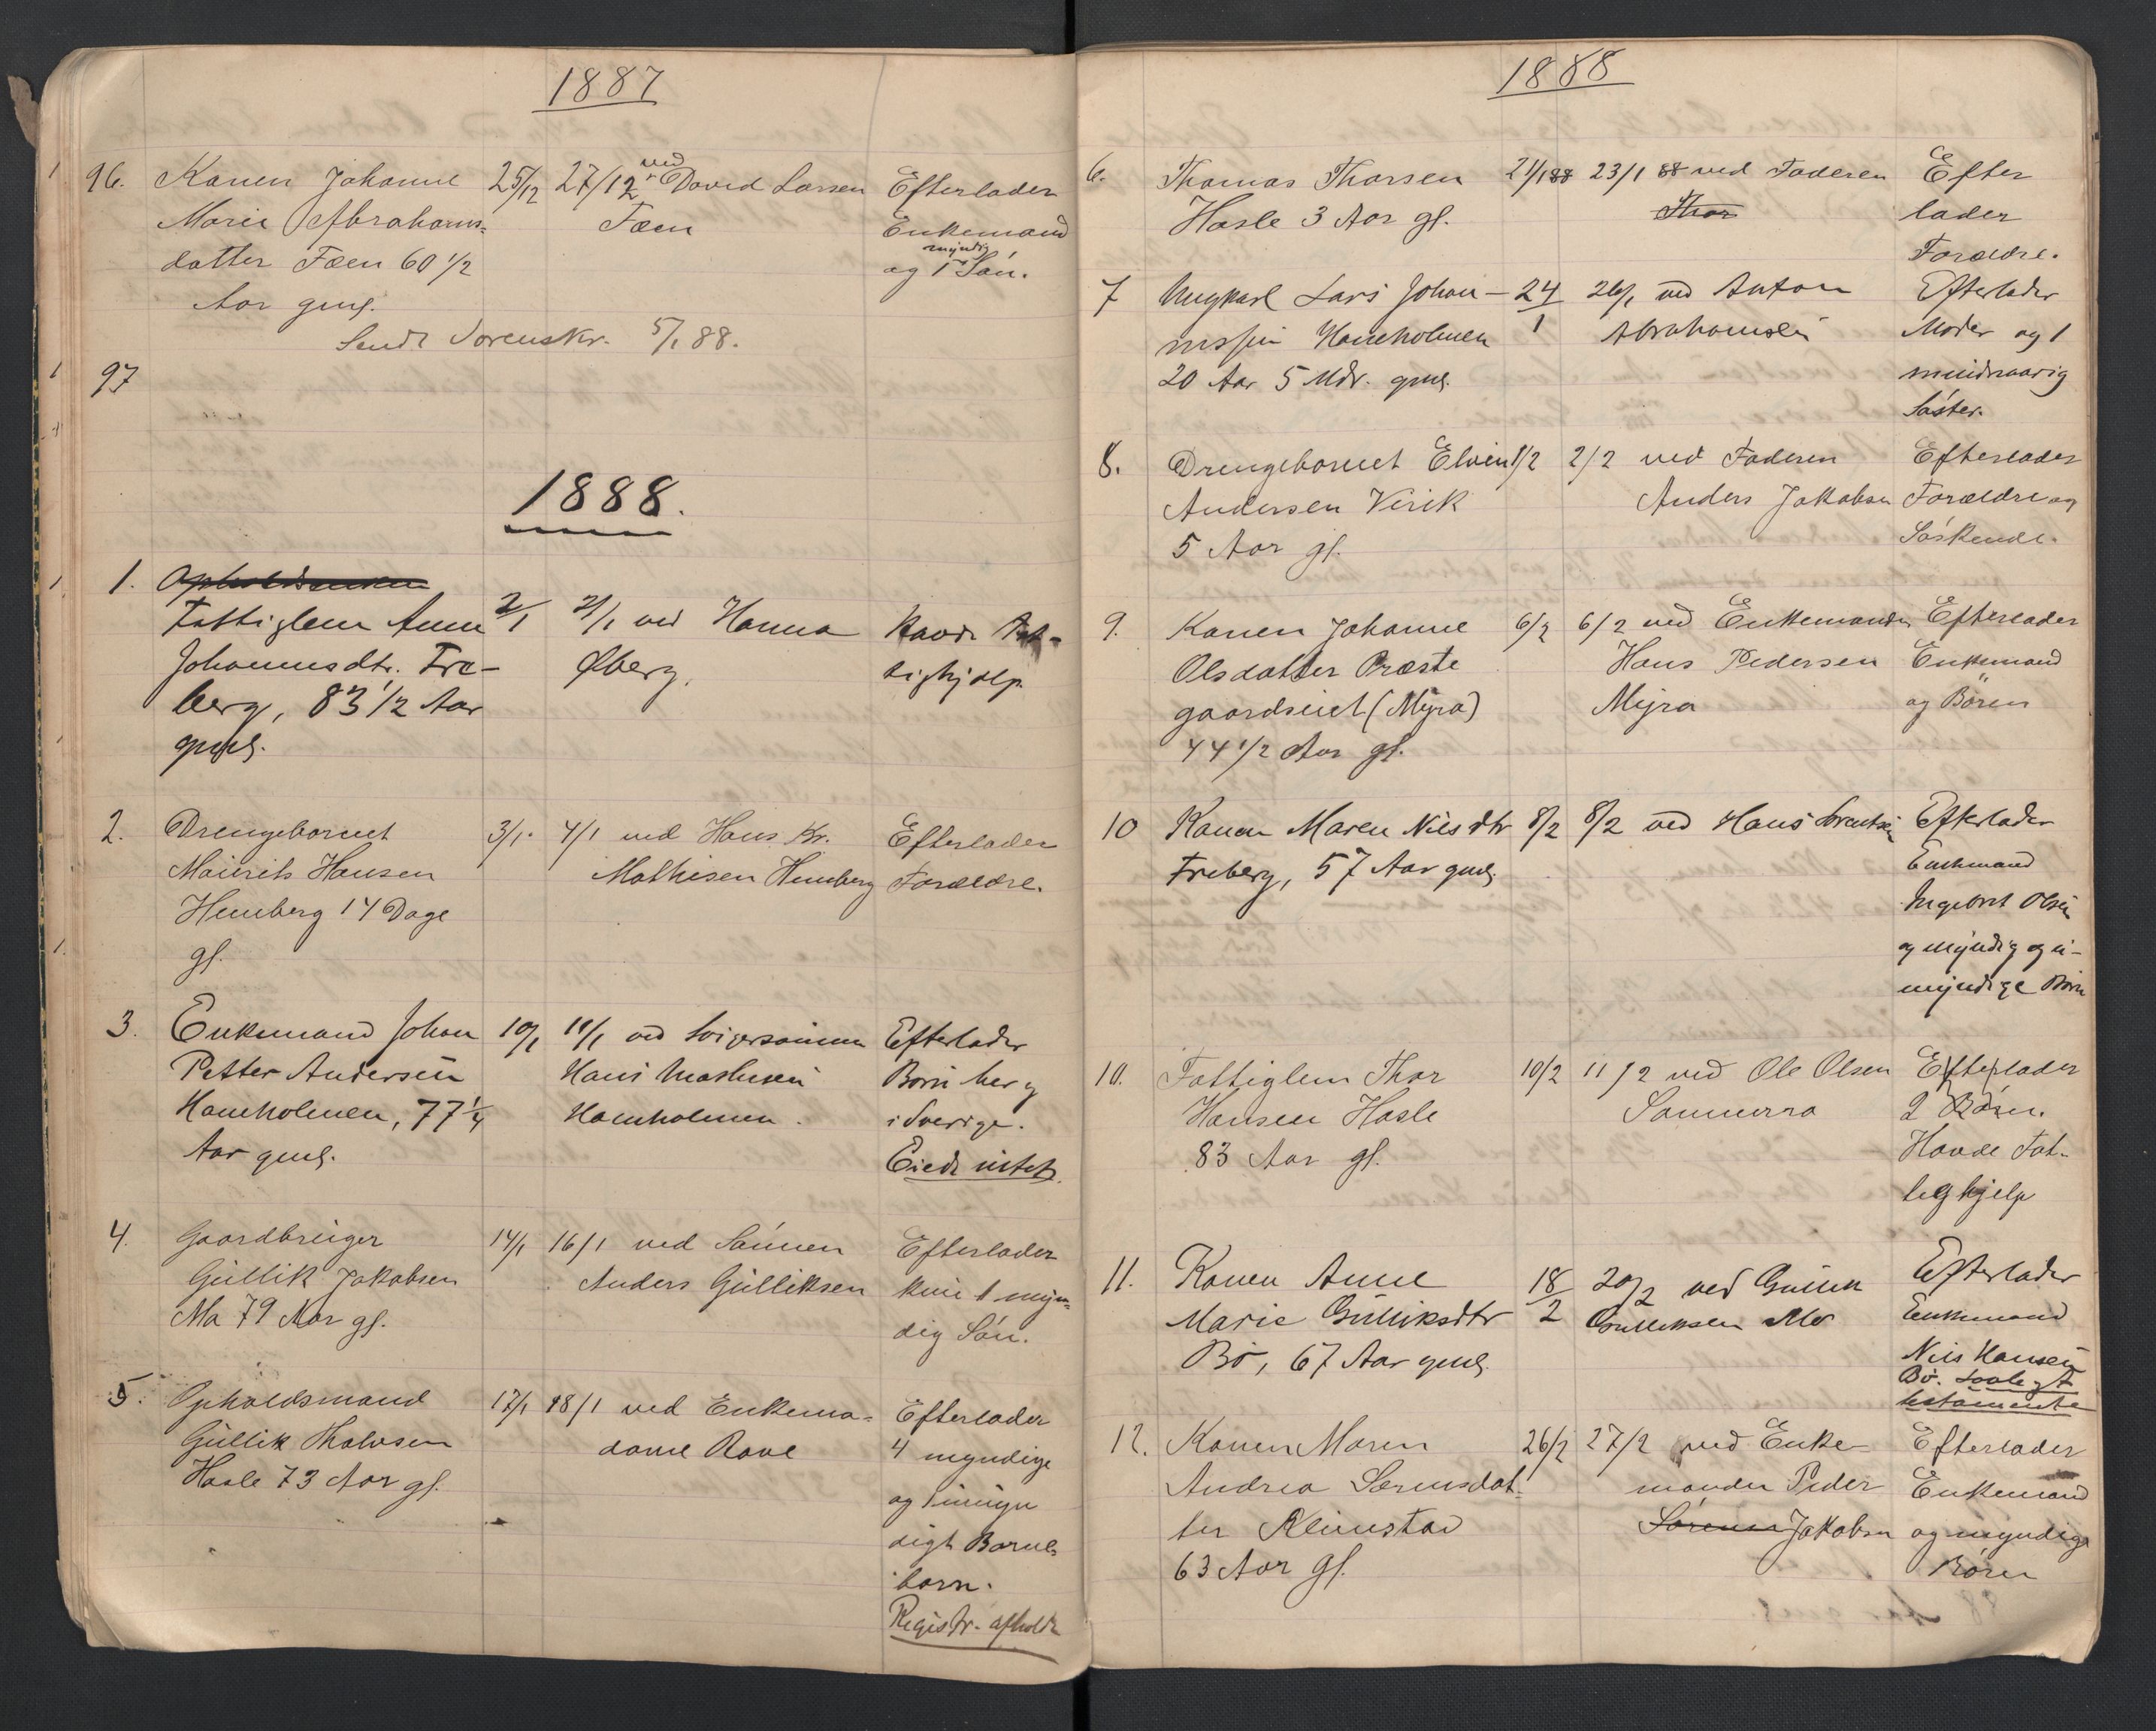 1887
96. Konen Johanne 25/12 27/12 ved David Larsen Efterlader
Marie Abrahams= Fæen Enkemand
datter Fæen 60 1/2 og 1 myndig Søn.
Aar gml.
Sendt Sorenskr. 5/1 88.
97
1888.
1. Opholdsenken
Fattiglem Anne 2/1 2/1 ved Hanna Havde Fat-
Johannesdtr. Fre- Øberg. tighjælp.
berg, 83 1/2 Aar
gml.
2. Drengebarnet 3/1. 4/1 ved Hans Kr. Efterlader
Maurits Hansen Mathisen Hemberg Forældre.
Hemberg 14 Dage
gl.
3. Enkemand Johan 10/1 11/1 ved Svigersønnen Efterlader
Petter Andersen Hans Mathisen Børn her og
Haneholmen, 77 1/4 Haneholmen. i Sverige.
Aar gml. Eiede intet.
4. Gaardbruger 14/1 16/1 ved Sønnen Efterlader
Gullik Jakobsen Anders Gulliksen kun 1 myn=
Mo 79 Aar gl. dig Søn.
5. Opholdsmand 17/1 18/1 ved Enkema= Efterlader
Gullik Thorvsen dame Rove 4 myndige
Hasle 73 Aar gl. og 1 umyn
digt Barne=
barn.
Registr. afholdt
1888
6. Thomas Thorsen 21/1 88 23/1 88 ved Faderen Efter
Hasle 3 Aar gl. Thor lader
Forældre.
7 Ungkarl Lars Johan- 24/1 26/1 ved Anton Efterlader
nessen Haneholmen Abrahamsen Moder og 1
20 Aar 5 Mdr. gml. mindreaarig
Søster.
8. Drengebarnet Elvin 1/2 2/2 ved Faderen Efterlader
Andersen Virik Anders Jakobsen Forældre og
5 Aar gl. Søskende.
9. Konen Johanne 6/2 6/2 ved Enkemanden Efterlader
Olsdatter Præste Hans Pedersen Enkemand
gaardseiet (Myra) Myra og Børen
44 1/2 Aar gl.
10 Konen Maren Nilsdtr 8/2 8/2 ved Hans Lorentsen Efterlader
Freberg, 57 Aar gml. Enkemand
Ingebret Olsen
og myndig og u-
myndige Børn
10. Fattiglem Thor 10/2 11/2 ved Ole Olsen Efterlader
Hansen Hasle Sannerra 2 Børn.
83 Aar gl. Havde Fat-
tighjelp
11. Konen Anne 18/2 20/2 ved Gullik Efterlader
Marie Gulliksdtr Gulliksen Mo Enkemand
Bø, 67 Aar gml. Nils Hansen
Bø.
testamente
12. Konen Maren 26/2 27/2 ved Enke- Efterlader
Andrea Sørensdat- manden Peder Enkemand
ter Klinestad Sørensen Jakobsen og myndige
63 Aar gl. Børn